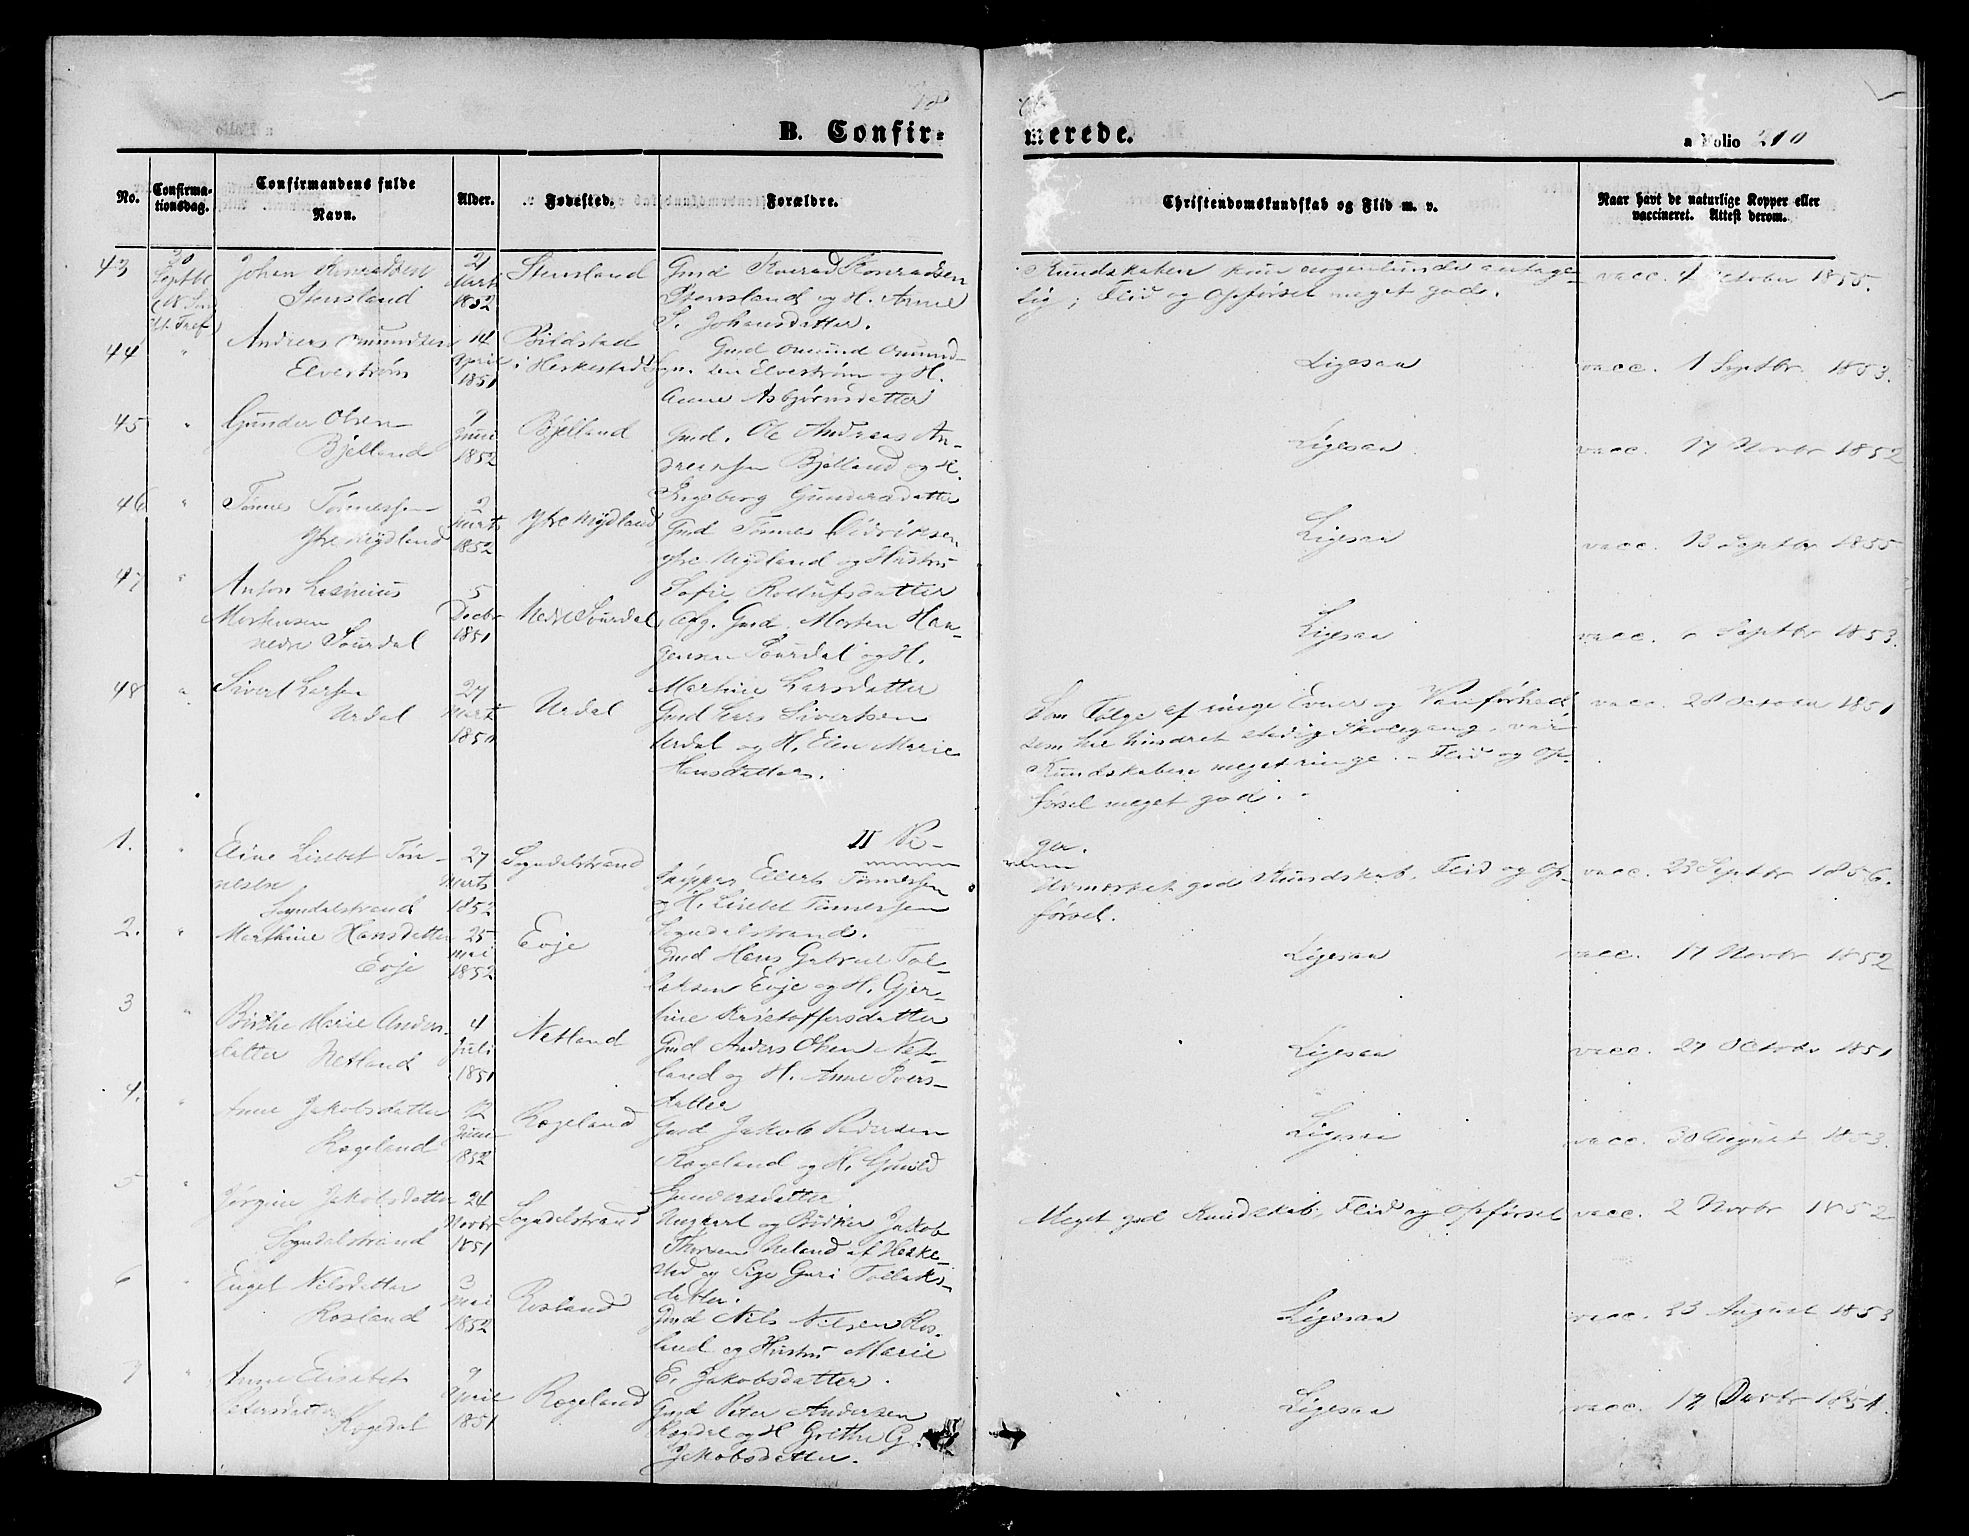 B. Confir-
merede.
a Folio 210
No.
Confirma-
tionsdag.
Confirmandens fulde
Navn.
Alder.
Fødested.
Forældre.
Christendomskundskab og Flid m. v.
Naar havt de naturlige Kopper eller
vaccineret. Attest derom.
43
30
Septbr
Johan Konradsen
Stensland
21
Marts
1852
Stensland
Gmd Konrad Konradsen
Stensland og H. Anne
S. Johansdatter.
Kundskaben kun nogenlunde antage-
lig; Flid og Opførsel meget god.
vacc. 4 October 1855.
44
"
Andreas Omundsen
Elvestrøm
14
April
1851
Bildstad
i Heskestad
Gmd Omund Omund-
sen Elvestrøm og H.
Anne Asbjørnsdatter
Ligesaa
vacc. 1 Septbr. 1853.
45
"
Gunder Olsen
Bjelland
9
Juni
1852
Bjelland
Gmd. Ole Andreas An-
dreassen Bjelland og H.
Ingeborg Gundersdatter
Ligesaa
vacc. 17 Novbr 1852
46
"
Tønnes Tønnessen
Ytre Mydland
2
Marts
1852
Ytre Mydland
Gmd Tønnes Didriksen
ytre Mydland og Hustru
Sofie Rollufsdatter
Ligesaa
vacc. 13 Septbr 1855
47
"
Anton Lasinius
Mortensen
nedre Sourdal
5
Decbr
1851
Nedre Sourdal
Afg. Gmd. Morten Hau-
gensen Sourdal og H.
Martine Larsdatter
Ligesaa
vacc. 6 Septbr 1853.
48
"
Sivert Larsen
Urdal
27
Marts
1851
Urdal
Gmd Lars Sivertsen
Urdal og H. Elen Marie
Hansdatter.
Som Følge af ringe Evner og Vanførhed
som har hindret stadig Skolegang, var
Kundskaben meget ringe. - Flid og Op-
førsel meget god.
vacc. 28 October 1851
II Pi-
ger.
1.
"
Eline Lisebet Tøn-
nessen
Sogndalstrand
27
Marts
1852
Sogndalstrand
Skipper Eilert Tønnessen
og H. Lisebet Tønnessen
Sogndalstrand.
Udmærket god Kundskab, Flid og Op-
førsel.
vacc. 23 Septbr 1856.
2.
"
Marthine Hansdatter
Evje
25
Mai
1852
Evje
Gmd Hans Gabriel Tol-
laksen Evje og H. Gjer-
tine Kristoffersdatter
Ligesaa
vacc. 17 Novbr 1852
3
"
Birthe Marie Anders-
datter Netland
4
Juli
1851
Netland
Gmd Anders Olsen Net-
land og H. Anne Ivers-
datter
Ligesaa
vacc. 27 October 1851
4.
"
Anne Jakobsdatter
Rageland
12
Juni
1852
Rageland
Gmd Jakob Pedersen
Rageland og H. Gunild
Gundersdatter
Ligesaa
vacc. 30 August 1853.
5
"
Jørgine Jakobsdatter
Sogndalstrand
24
Novbr
1851
Sogndalstrand
Ungkarl og Bødker Jakob
Thorsen Neland af Heske-
stad og Pige Guri Tollaks-
datter.
Meget god Kundskab, Flid og Opførsel
vacc. 2 Novbr 1852
6
"
Enget Nilsdatter
Rosland
3
Mai
1852
Rosland
Gmd Nils Nilsen Ros-
land og Hustru Marie
E. Jakobsdatter.
Ligesaa
vacc. 23 August 1853
7
"
Anne Elisabet
Petersdatter
Rogedal
9
April
1851
Rageland
Gmd Peter Andersen
Rogdal og H Grethe G.
Jakobsdatter.
Ligesaa
vacc. 1851.